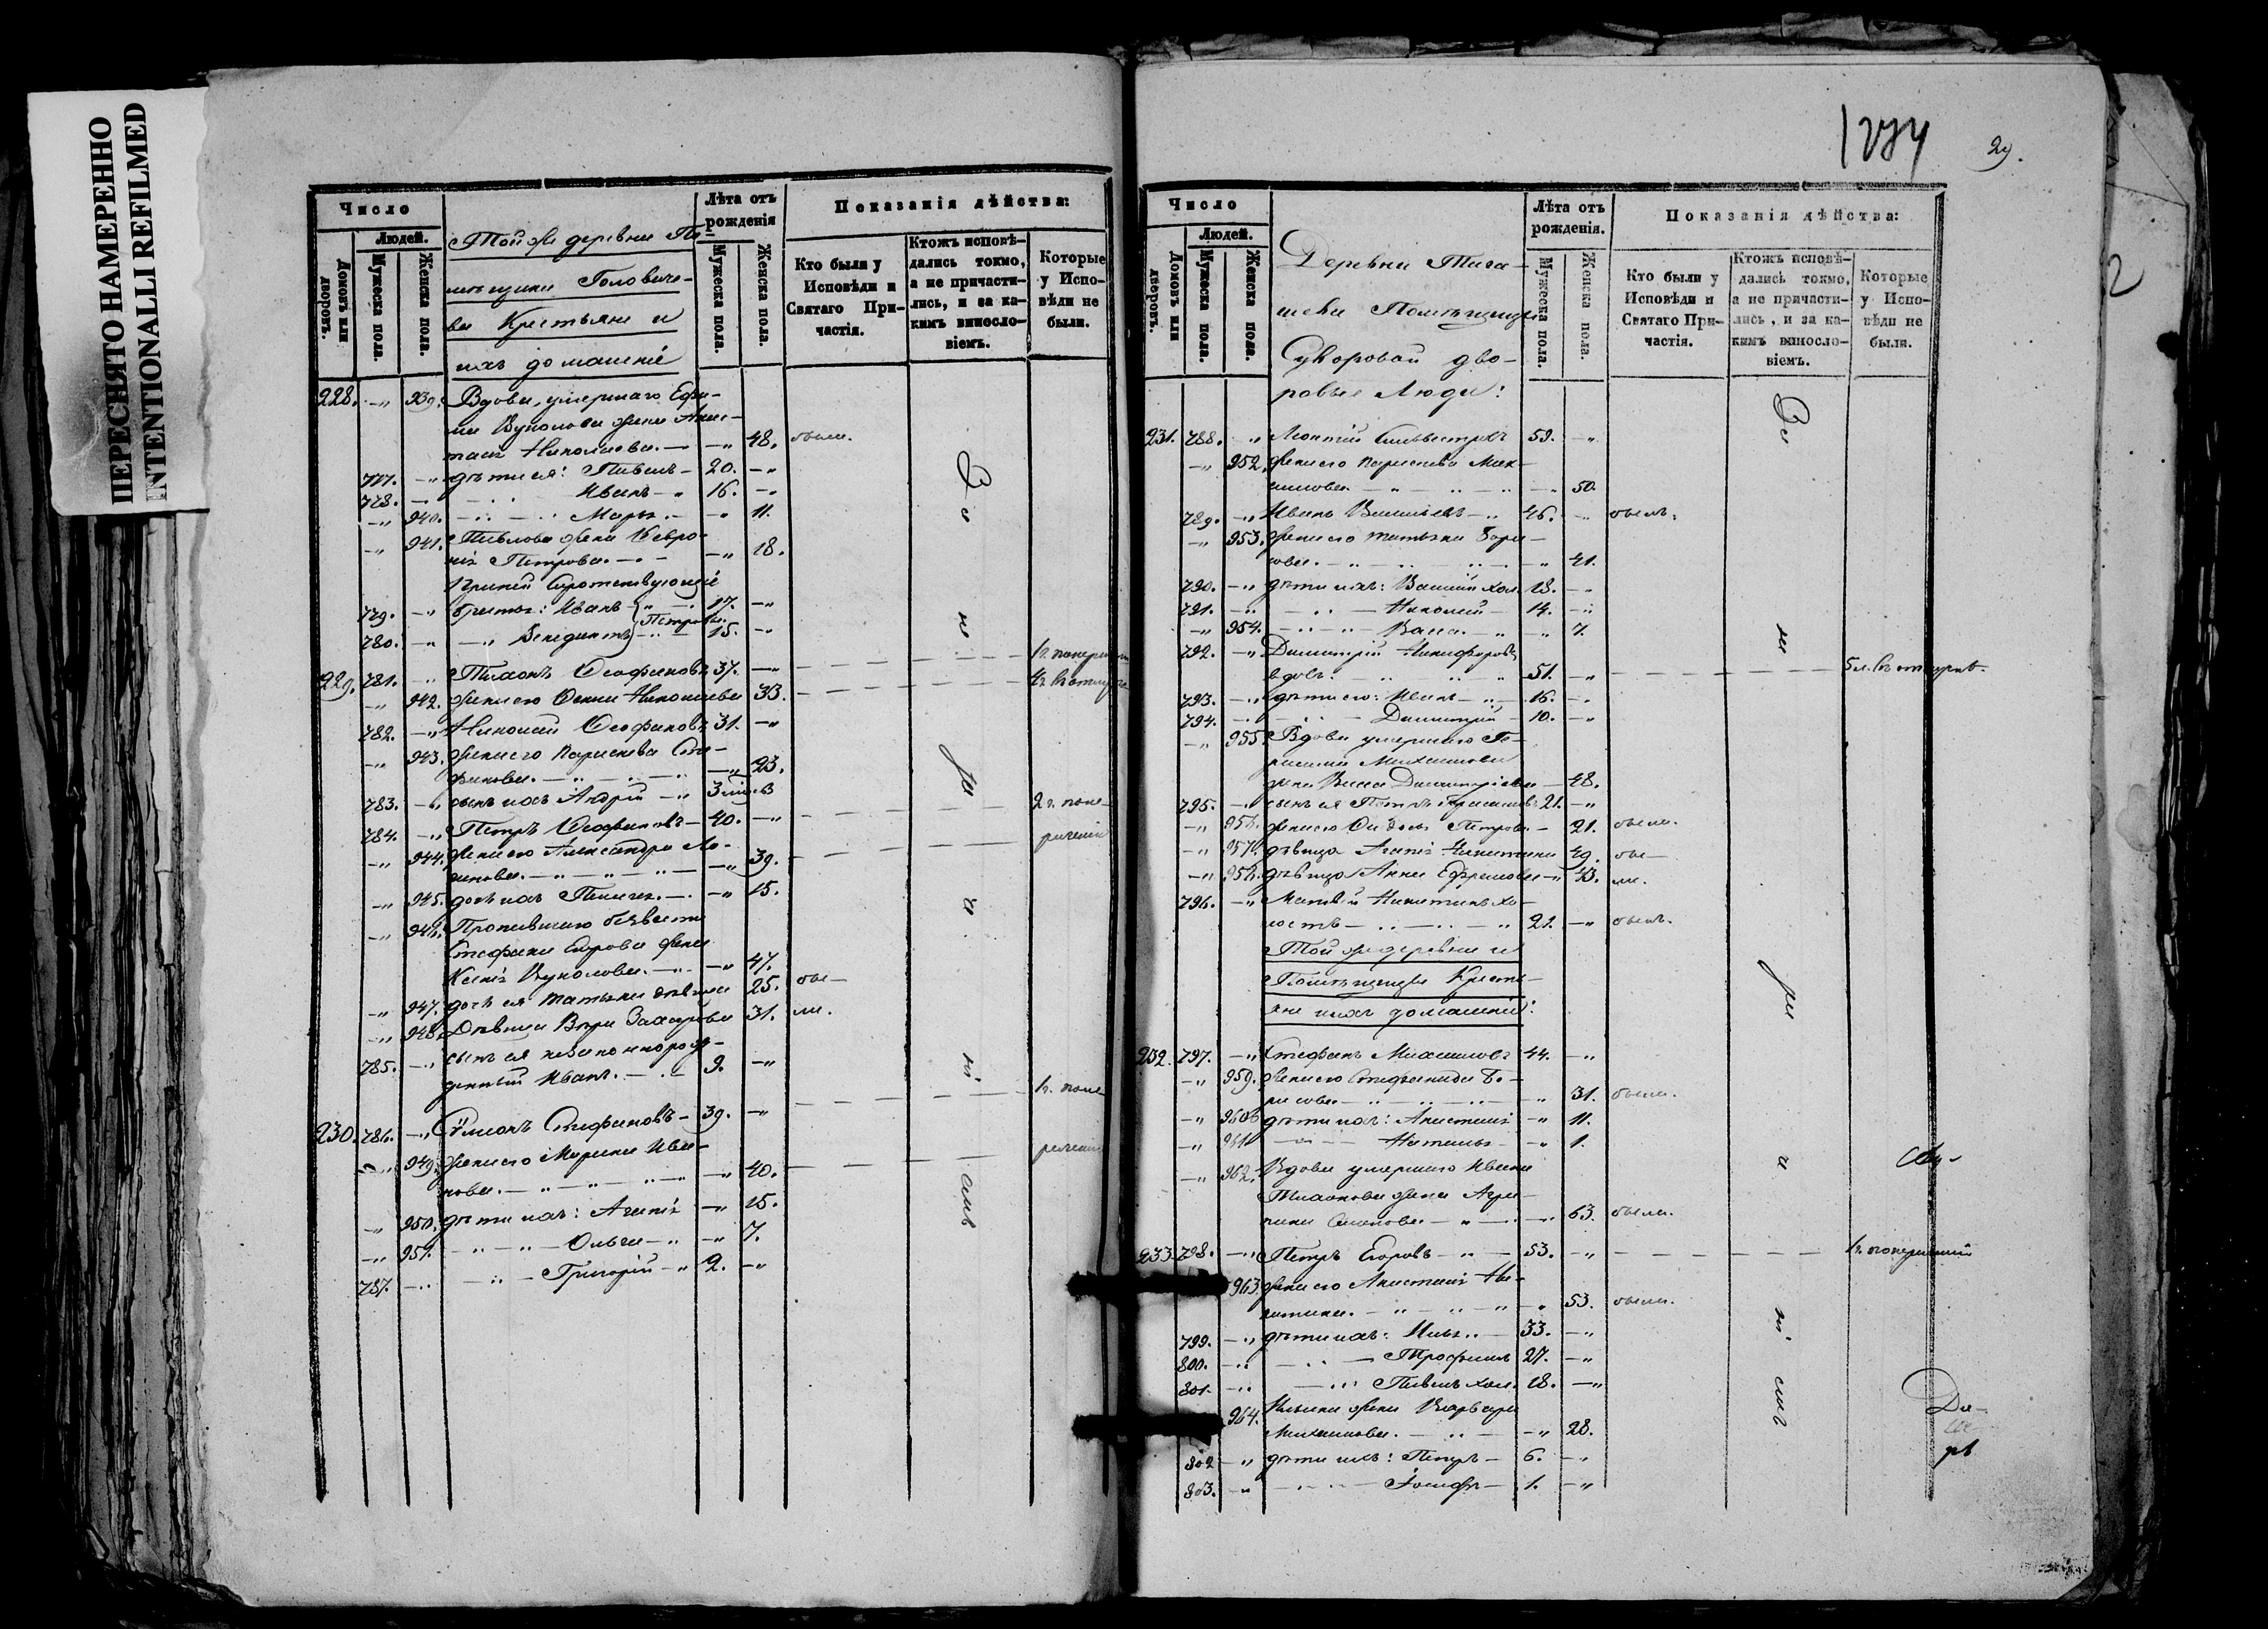 ПЕРЕСНЯТО НАМЕРЕННО
INTENTIONALLI REFILMED
Число
Людей.
Домовъ или дворовъ.
Мужеска пола.
Женска пола.
Той же деревни По-
мѣщика Головаче-
ва Крестьяне и
ихъ домашніе
Лѣта отъ рожденія
Мужеска пола.
Женска пола.
Показанія дѣйства:
Кто были у Исповѣди и Святаго Причастія.
Ктожъ исповѣ-
дались токмо,
а не причасти-
лись, и за ка-
кимъ винословіемъ.
Которые у Исповѣди не были.
228. 939. Вдова, умершаго Ефи-
ма Вуколова жена Анис-
Николаева. 48. были.
777. дѣти ея: Павелъ 20.
778. Иванъ 16.
940. Марья 11.
941. Павлова жена Февро-
нія Петрова. 18.
При ней сиротствующіе
779. братья: Иванъ 17.
Петровы
780. Венедиктъ 15.
229. 781. Тихонъ Ѳеофановъ 37. 1 г.
942. жена его Николаева 33.
782. Николай Ѳеофановъ 31.
943. жена его Параскева Сте-
фанова. 23.
783. сынъ ихъ Андрей 3
784. Петръ Ѳеофановъ 40. 2 г. по не-
раченію
944. жена его Александра Ло-
гинова. 39.
945. дочь ихъ Пелагея 15.
946. Пропавшаго безвести
Стефана Егорова жена
Ксенія Вуколова. 47.
947. дочь ея Татьяна дѣвица 25. бы-
948. Дѣвица Вѣра Захарова 31. ли.
785. сынъ ея незаконнорож-
денный Иванъ. 9.
230. 786. Сѵмеонъ Стефановъ 39. 1 г. по не-
раченію
949. жена его Марина Ива-
нова. 40.
950. дѣти ихъ: Агапія 15.
951. Ольга 7.
787. Григорій 2.
1274
29.
2
Число
Людей.
Домовъ или дворовъ.
Мужеска пола.
Женска пола.
Деревни Тига-
шева Помѣщицы
Суворовой дво-
ровые Люди:
Лѣта отъ рожденія.
Мужеска пола.
Женска пола.
Показанія дѣйства:
Кто были у Исповѣди и Святаго Причастія.
Ктожъ исповѣ-
дались токмо,
а не причасти-
лись, и за ка-
кимъ винословіемъ.
Которые у Исповѣди не были.
231. 788. Леонтій Сильвестровъ 59.
952. жена его Параскева Мих-
аилова. 50.
789. Иванъ Васильевъ 46. былъ.
953. жена его Татьяна Бори-
сова. 41.
790. дѣти ихъ: Василій хол. 18.
791. Николай 14.
954. Васса 7.
792. Димитрій Никифоровъ
вдовъ. 51. 5 л. въ отлучкѣ.
793. дѣти его: Иванъ 16.
794. Димитрій 10.
955. Вдова умершаго Ге-
расима Михаилова
жена Васса Димитріева 48.
795. сынъ ея Петръ Герасимовъ 21.
956. жена его Ѳедосья Петрова 21. была.
957. дѣвица Агапія Никитина 49. бы-
958. дѣвица Анна Ефремова 43. ли.
796. Матвѣй Никитинъ хо-
лостъ 21. былъ.
Той же деревни и
Помѣщицы Кресть-
яне и ихъ домашніе:
232. 797. Стефанъ Михаиловъ 44.
959. жена его Стефанида Бо-
рисова 31. была.
960. дѣти ихъ: Анастасія 11.
961. Наталья 1.
962. Вдова умершаго Ивана
Тихонова жена Агри-
пина Симонова 63. была.
233. 798. Петръ Егоровъ 53. 1 г. по нераченію
963. жена его Анастасія Ни-
китина. 53. была.
799. дѣти ихъ: Илья 33.
800. Трофимъ 27.
801. Павелъ хол. 18.
964. Ильина жена Варвара
Михаилова. 28.
802. дѣти ихъ: Петръ 6.
803. Іосифъ 1.